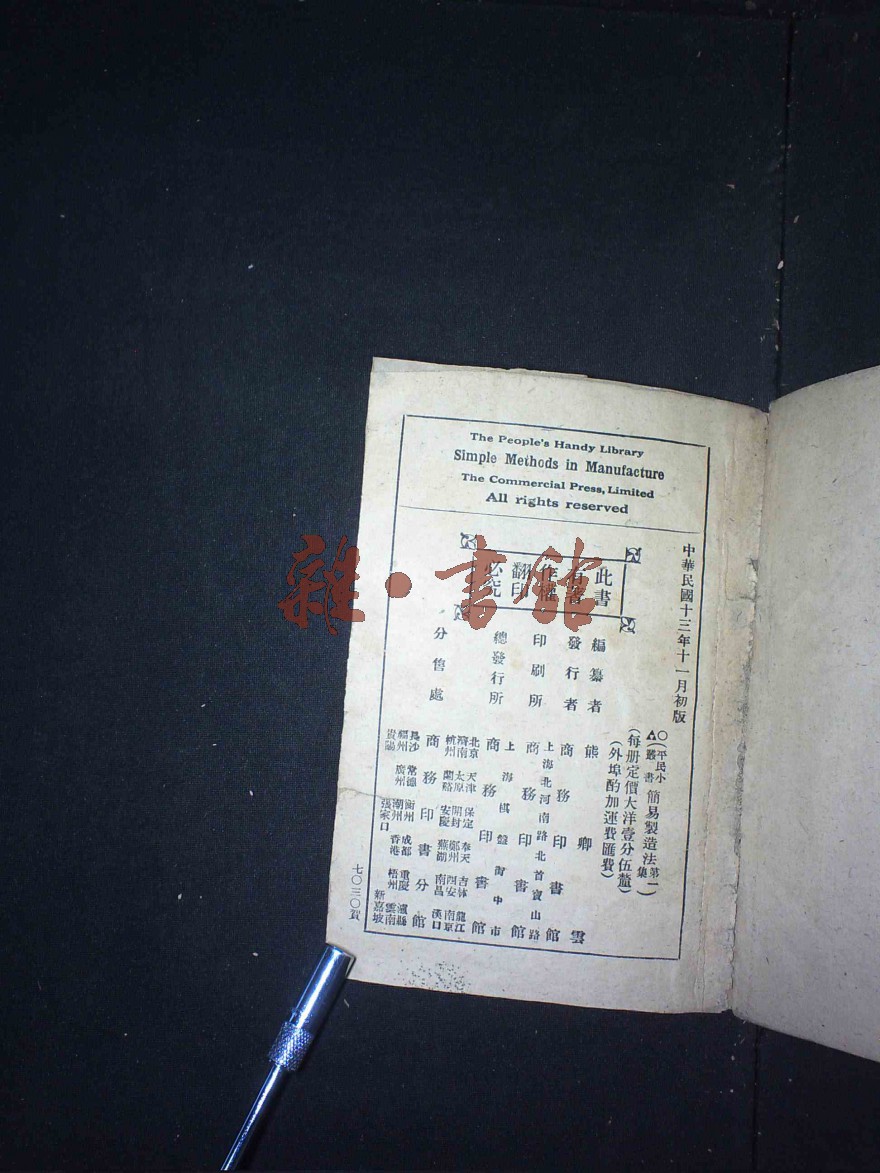 The People's Handy Library
Simple Methods in Manufacture
The Commercial Press, Limited
All rights reserved
中華民國十三年十一月初版
(平民小叢書)簡易製造法第一集
(每册定價大洋壹分伍釐)
(外埠酌加運費匯費)
此書有著作權翻印必究
編纂者 熊卿雲
發行者 商務印書館
印刷所 上海北河南路北首寶山路 商務印書館
總發行所 上海棋盤街中市 商務印書館
分售處 商務印書分館
北京 天津 保定 奉天 吉林 龍江
濟南 太原 開封 鄭州 西安 南京
杭州 蘭谿 安慶 蕪湖 南昌 漢口
長沙 常德 衡州 成都 重慶 瀘縣
福州 廣州 潮州 香港 梧州 雲南
貴陽 張家口 新嘉坡
七〇三〇賀
雜·書館